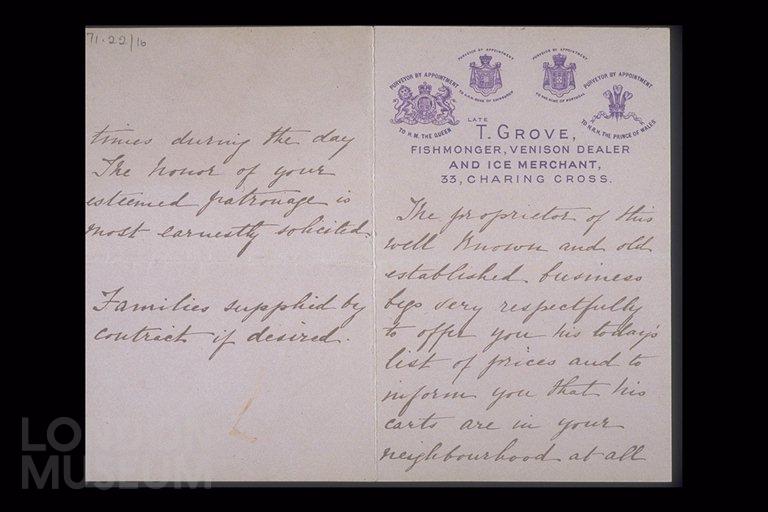 71.22/16
times during the day
The honor of your
esteemed patronage is
most earnestly solicited.
Families supplied by
contract if desired.
PURVEYOR BY APPOINTMENT
TO H.M. THE QUEEN
PURVEYOR BY APPOINTMENT
TO H.R.H. DUKE OF EDINBURGH
PURVEYOR BY APPOINTMENT
TO THE KING OF PORTUGAL
PURVEYOR BY APPOINTMENT
TO H.R.H. THE PRINCE OF WALES
LATE
T. GROVE,
FISHMONGER, VENISON DEALER
AND ICE MERCHANT,
33, CHARING CROSS.
The proprietor of this
well known and old
established business
begs very respectfully
to offer you his today's
list of prices and to
inform you that his
carts are in your
neighbourhood at all
LONDON
MUSEUM